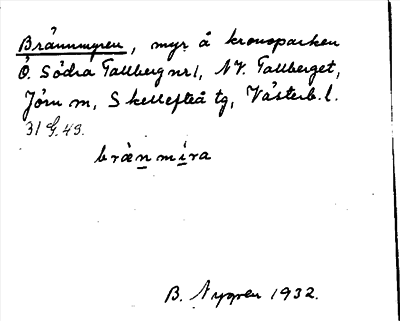 Brännmyren, myr å kronoparken
Ö. Södra Tallberg nr 1, NV. Tallberget,
Jörn sn, Skellefteå tg, Västerb. l.
31 G. 49.
brànmíra
B. Nygren 1932.